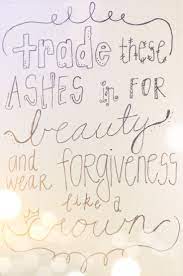 trade these
ASHES in FOR
beauty
and wear FORGIVENESS
like a
crown